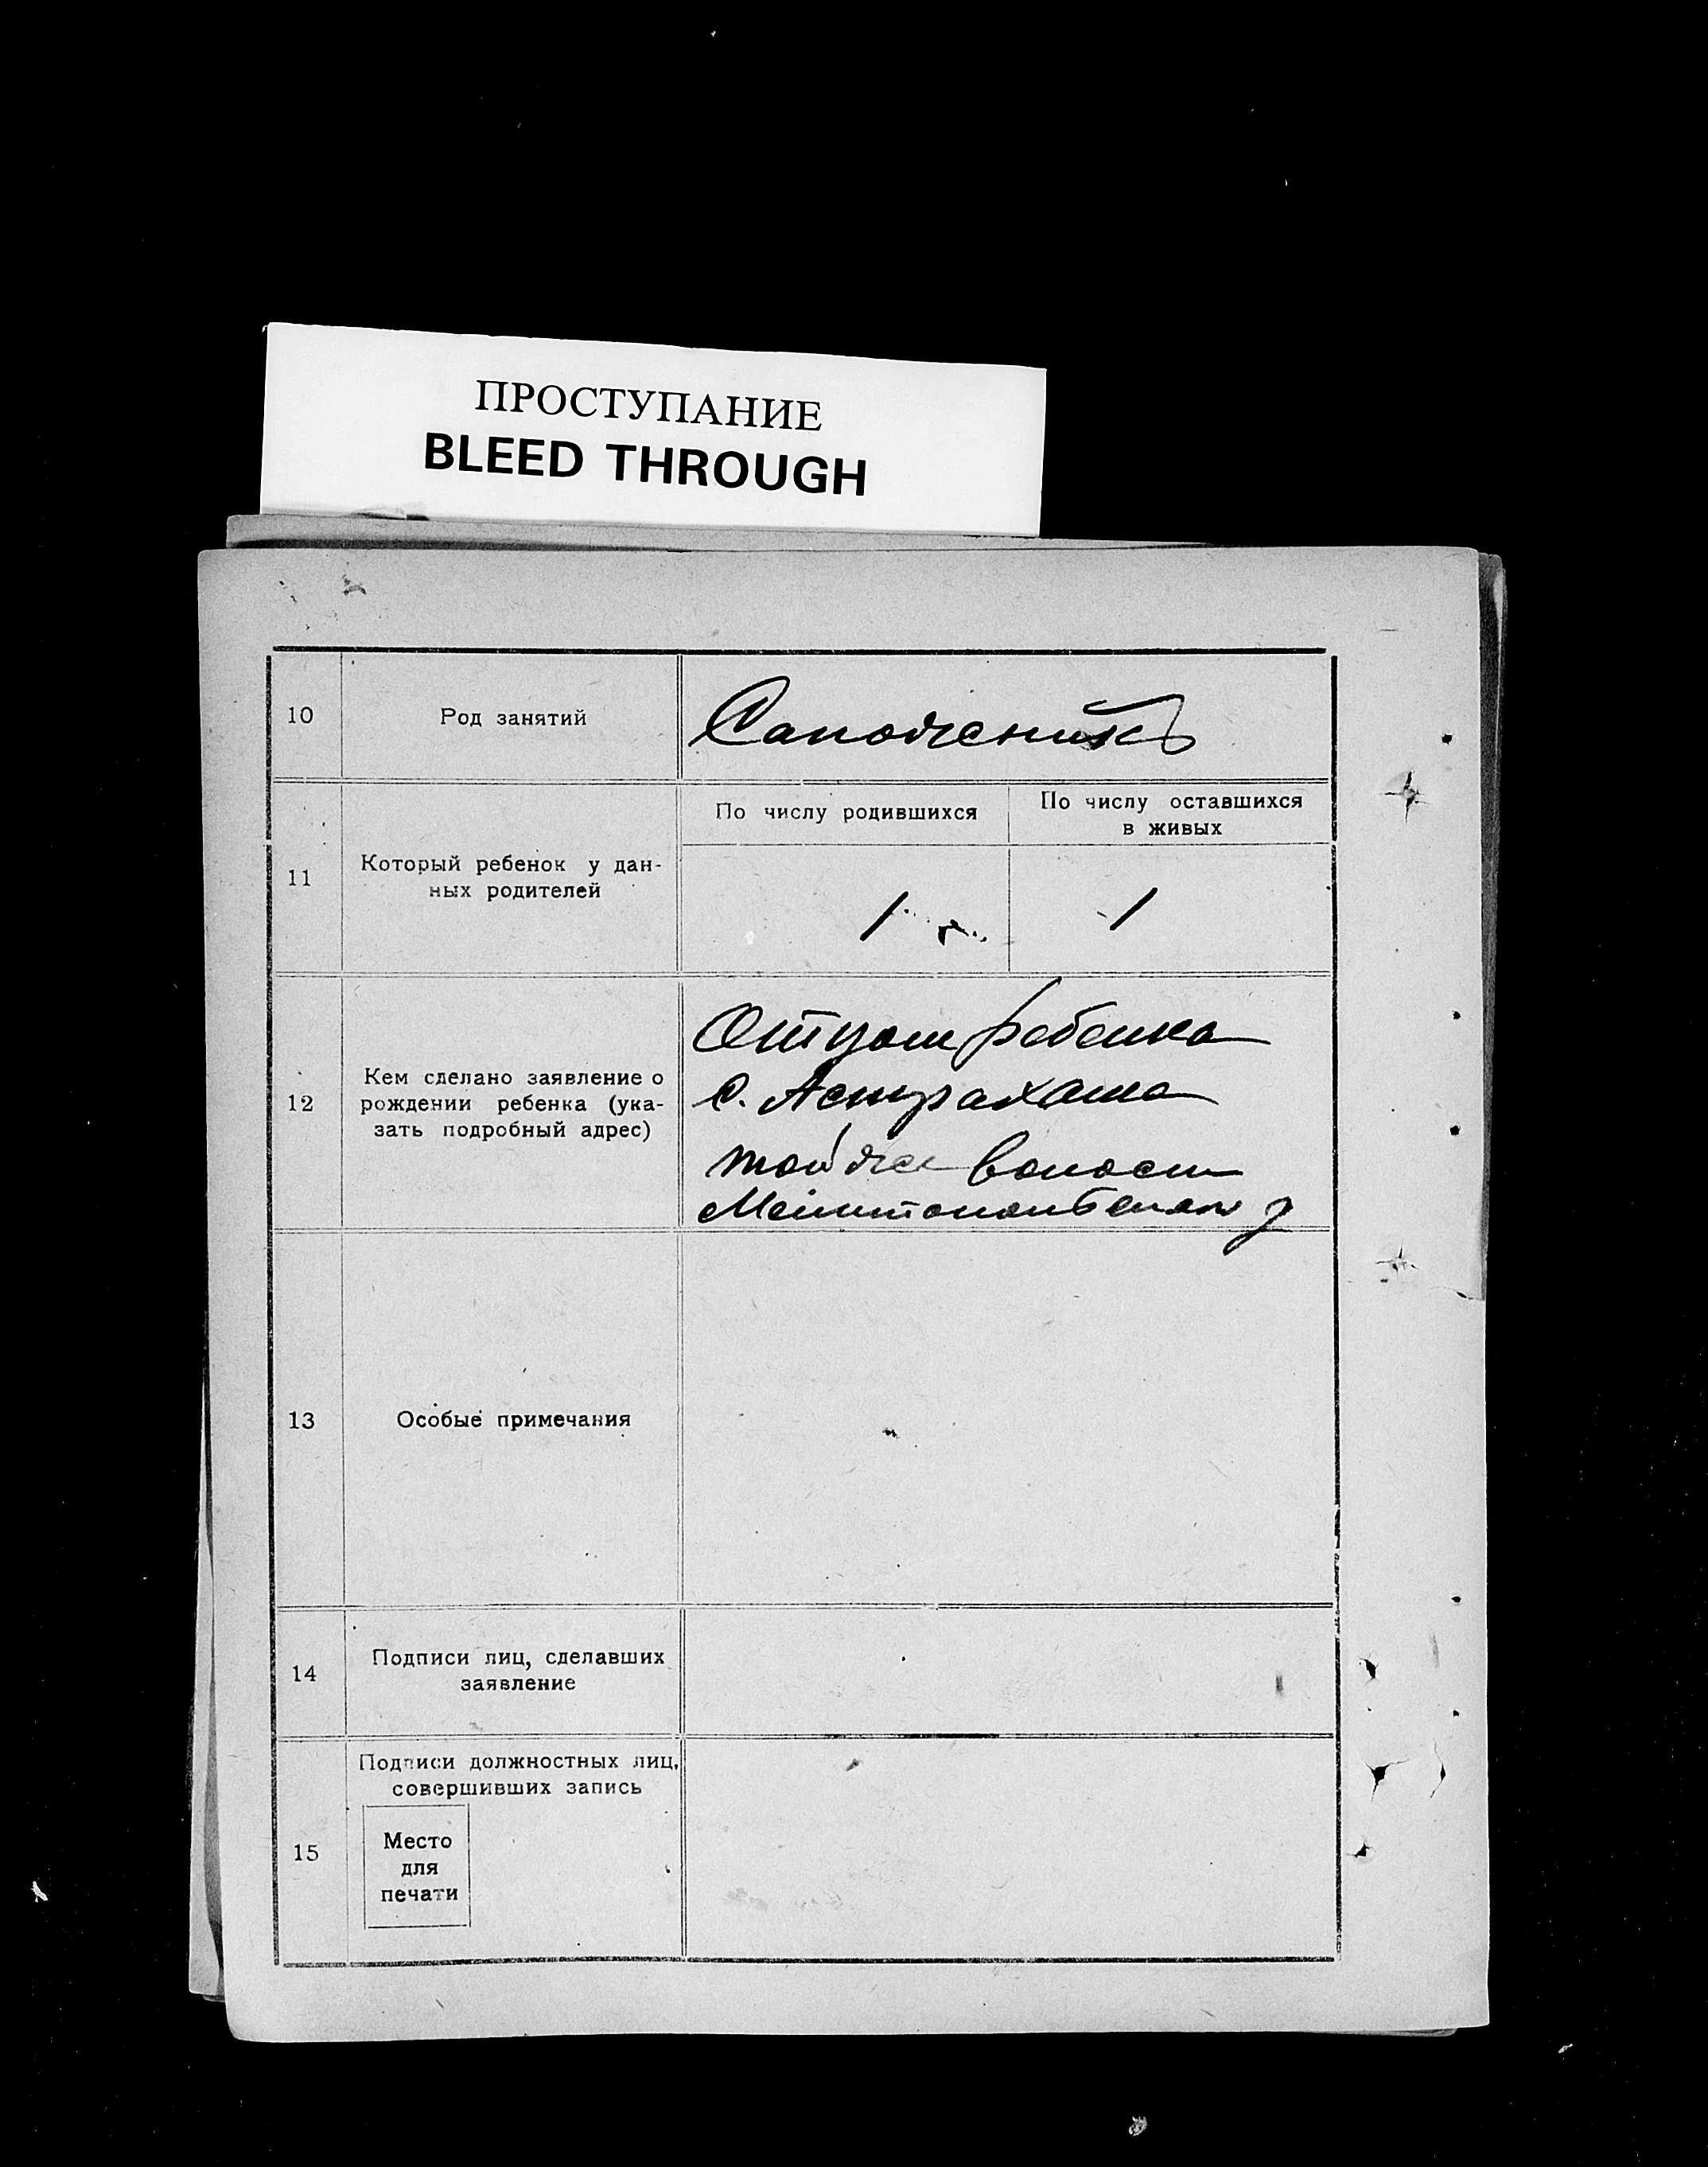 ПРОСТУПАНИЕ
BLEED THROUGH
10
Род занятий
Сапожникъ
11
Который ребенок у дан-
ных родителей
По числу родившихся
По числу оставшихся
в живых
1
1
12
Кем сделано заявление о
рождении ребенка (ука-
зать подробный адрес)
Отцом ребенка
С. Астраханка
той же волост
Мелитопольск у
13
Особые примечания
14
Подписи лиц, сделавших
заявление
15
Подписи должностных лиц,
совершивших запись
Место
для
печати